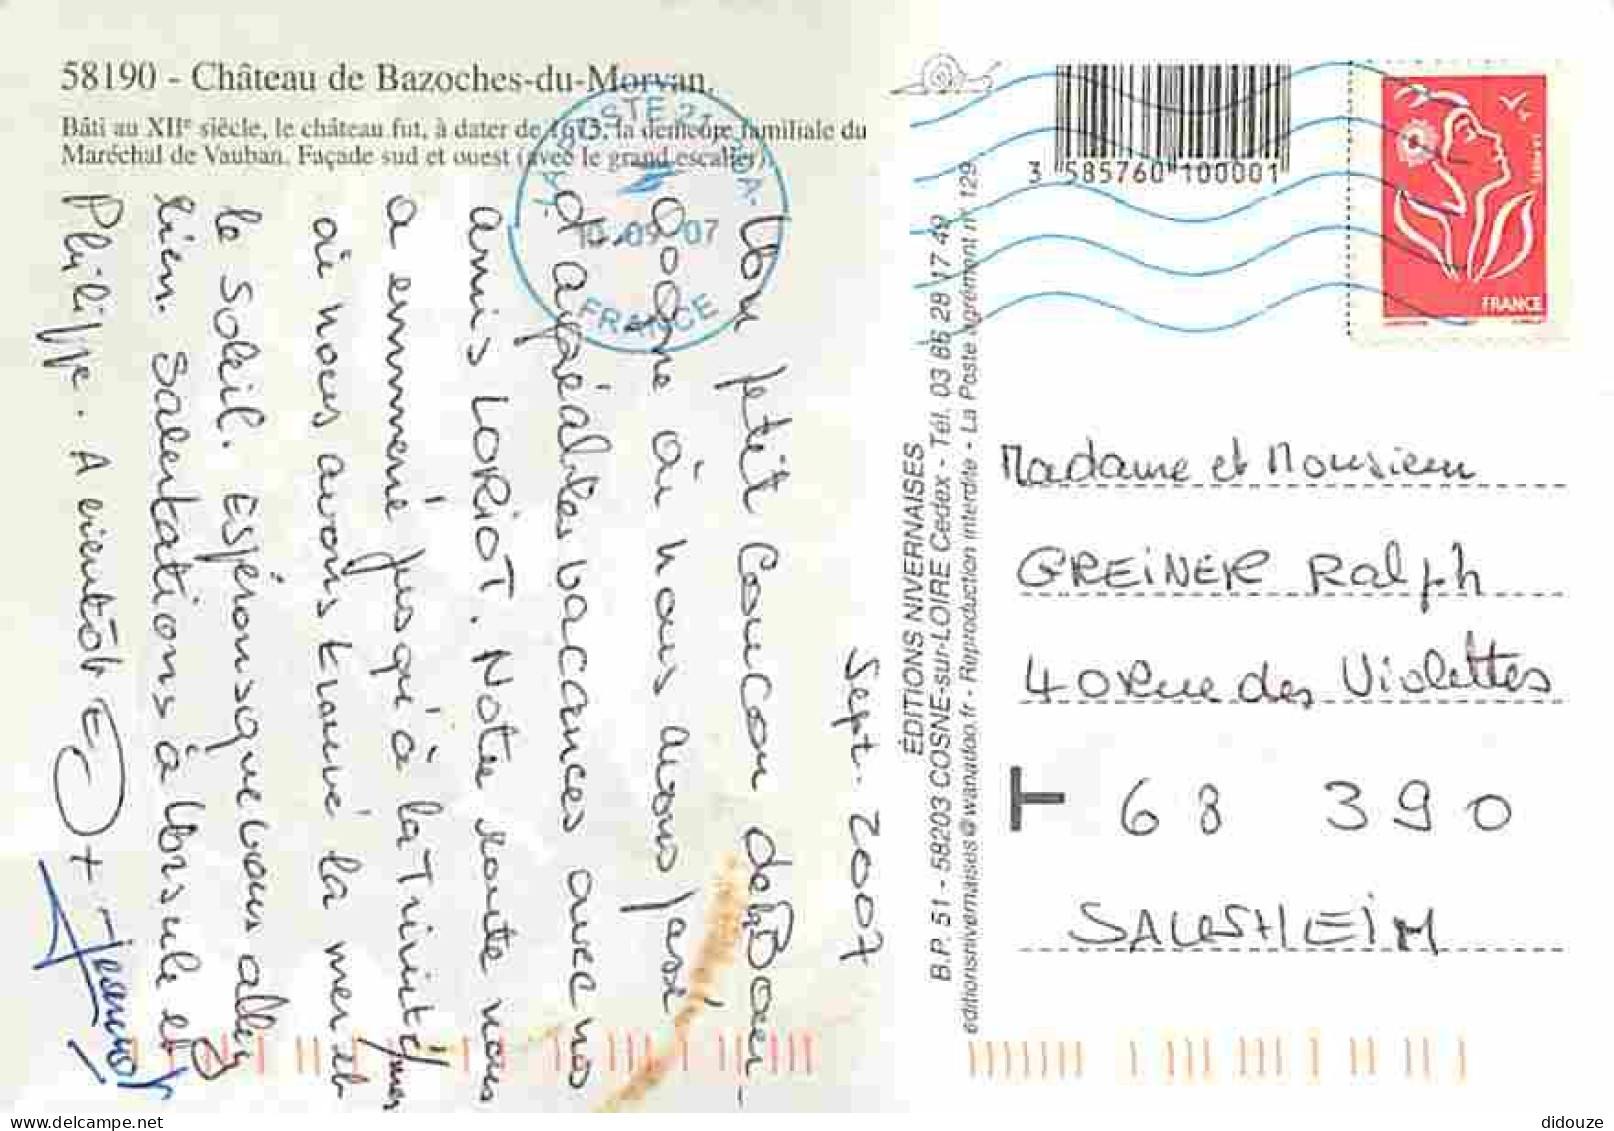 58190 - Château de Bazoches-du-Morvan.
Bâti au XIIe siècle, le château fut, à dater de 1675, la demeure familiale du
Maréchal de Vauban. Façade sud et ouest (avec le grand escalier).
Sept. 2007
Un petit Coucou de la Bour-
gogne où nous avons passé
d'agréables vaccances avec nos
amis LORIOT. Notre route nous
a emmené jusqu'à la Trinité/mer
où nous avons trouvé la mer et
le Soleil. Espérons que vous allez
bien. Salutations à Ursule et
Philippe. A bientôt
FRANCE
10-09-07
ÉDITIONS NIVERNAISES
B.P. 51 - 58203 COSNE-sur-LOIRE Cedex - Tél. 03 86 28 17 49
editionsnivernaises@wanadoo.fr - Reproduction interdite - La Poste agrément n° 129
3 585760 100001
FRANCE
Madame et Monsieur
GREINER Ralph
40 Rue des Violettes
T 68 390
SAUSHEIM
didouze